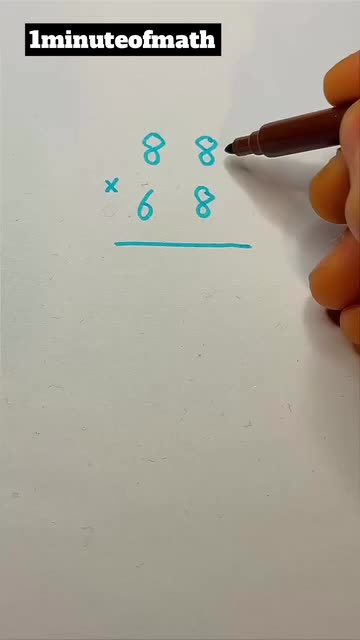 1minuteofmath
8 8
x
6 8